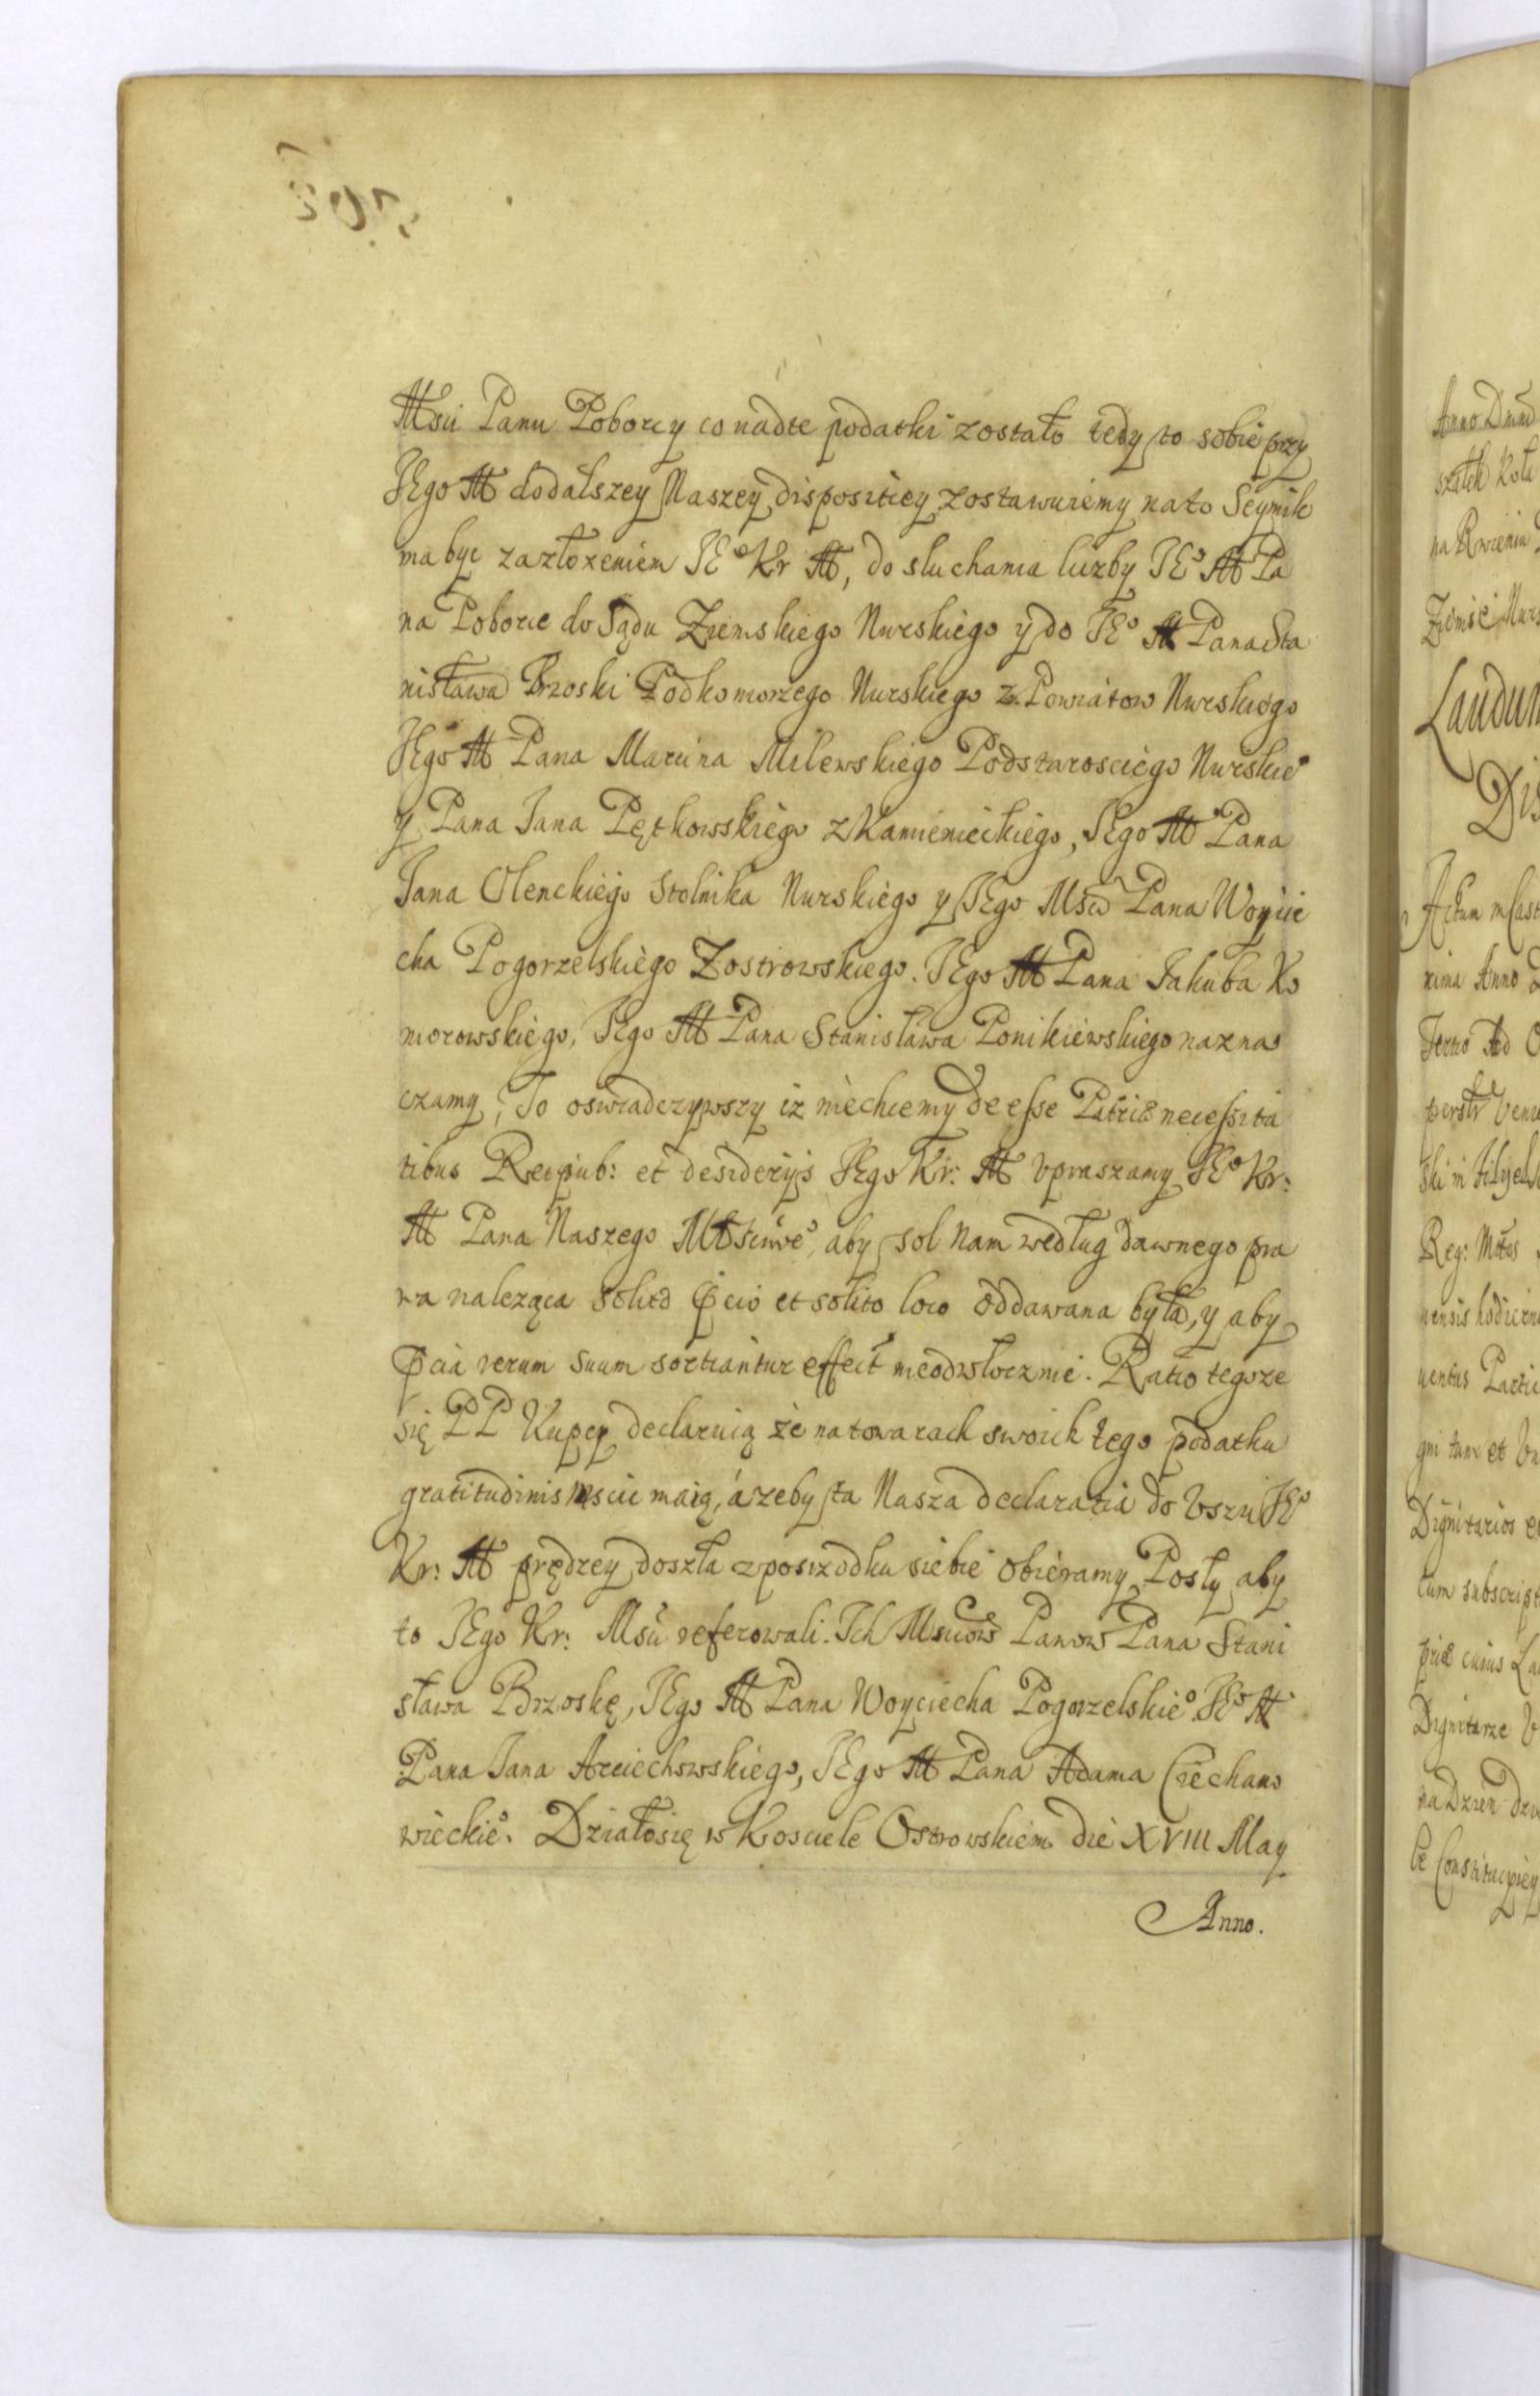 Msci Panu Poborcy co nadte podatki zostało tedy to sobie przy
JEgo M do dalszey Naszey dispositiey zostawuiemy na to Seymik
ma byc zazłozeniem JEº Kr M, do sluchania liczby JEº M Pa
na Poborce do Sądu Ziemskiego Nurskiego y do JEº M Pana Sta
nisława Brzoski Podkomorzego Nurskiego z Powiatow Nurskiego
JEgo M Pana Marcina Milewskiego Podstarosciego Nurskieº
y Pana Jana Pętkowsskiego z Kamienieckiego, JEgo M Pana
Jana Olenckiego Stolnika Nurskiego y JEgo Msci Pana Woycie
cha Pogorzelskiego Zostrowskiego. JEgo M Pana Jakuba Ko
morowskiego, JEgo M Pana Stanisława Ponikiewskiego naxna
czamy, To oswiadczywszy iz niechcemy deesse Patriæ necessita
tibus Reipub: et desiderijs JEgo Kr: M Vpraszamy JEº Kr:
M Pana Naszego Msciwеº, aby sol Nam według dawnego pra
wa naleząca solito et solito loco oddawana była, y aby
verum suum sortiantur effect nieodwłocznie. Ratio tegoze
się PP Kupcy declaruią że na towarach swoich tego podatku
gratitudinis mscic maią, á zeby ta Nasza declaratia do Vszu JEº
Kr: M prędzey doszła z posrzodku siebie obieramy Posły aby
to JEgo Kr: Msci referowali. Ich Msciow Panow Pana Stani
sława Brzoskę, JEgo M Pana Woyciecha Pogorzelskieº. JEº M
Pana Jana Arciechowskiego, JEgo M Pana Adama Ciechano
wieckieº. Działosię w Kosciele Ostrowskiem die XVIII May
Anno.
Anno
Laudum
Actum
Anno
Reg: